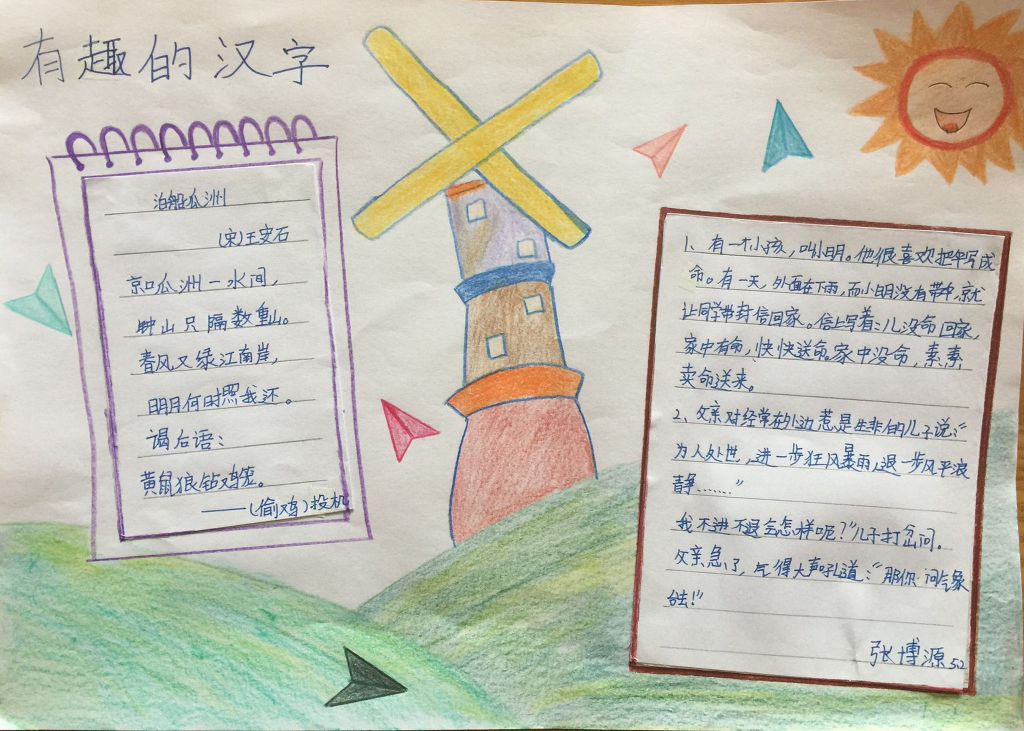 有趣的汉字
泊船瓜洲
(宋)王安石
京口瓜洲一水间，
钟山只隔数重山。
春风又绿江南岸，
明月何时照我还。
谒后语：
黄鼠狼钻鸡笼。
——(偷鸡)投机
1、有一个小孩，叫小明。他很喜欢把伞写成
命。有一天，外面在下雨，而小明没有带伞，就
让同学带封信回家。信上写着：儿没命回家，
家中有命，快快送命，家中没命，素素
卖命送来。
2、父亲对经常在外边惹是生非的儿子说：“
为人处世，进一步狂风暴雨，退一步风平浪
静……”
我不进不退会怎样呢？”儿子打岔问。
父亲急了，气得大声吼道：“那你问气象
台去！”
张博源 52